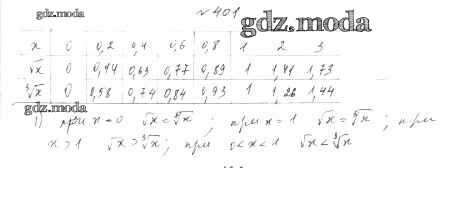 gdz.moda
№401
gdz.moda
x 0 0,2 0,4 0,6 0,8 1 2 3
√x 0 0,44 0,63 0,77 0,89 1 1,41 1,73
∛x 0 0,58 0,74 0,84 0,93 1 1,26 1,44
gdz.moda
1) при x=0 √x=∛x; при x=1 √x=∛x; при
x>1 √x>∛x; при 0<x<1 √x<∛x
...